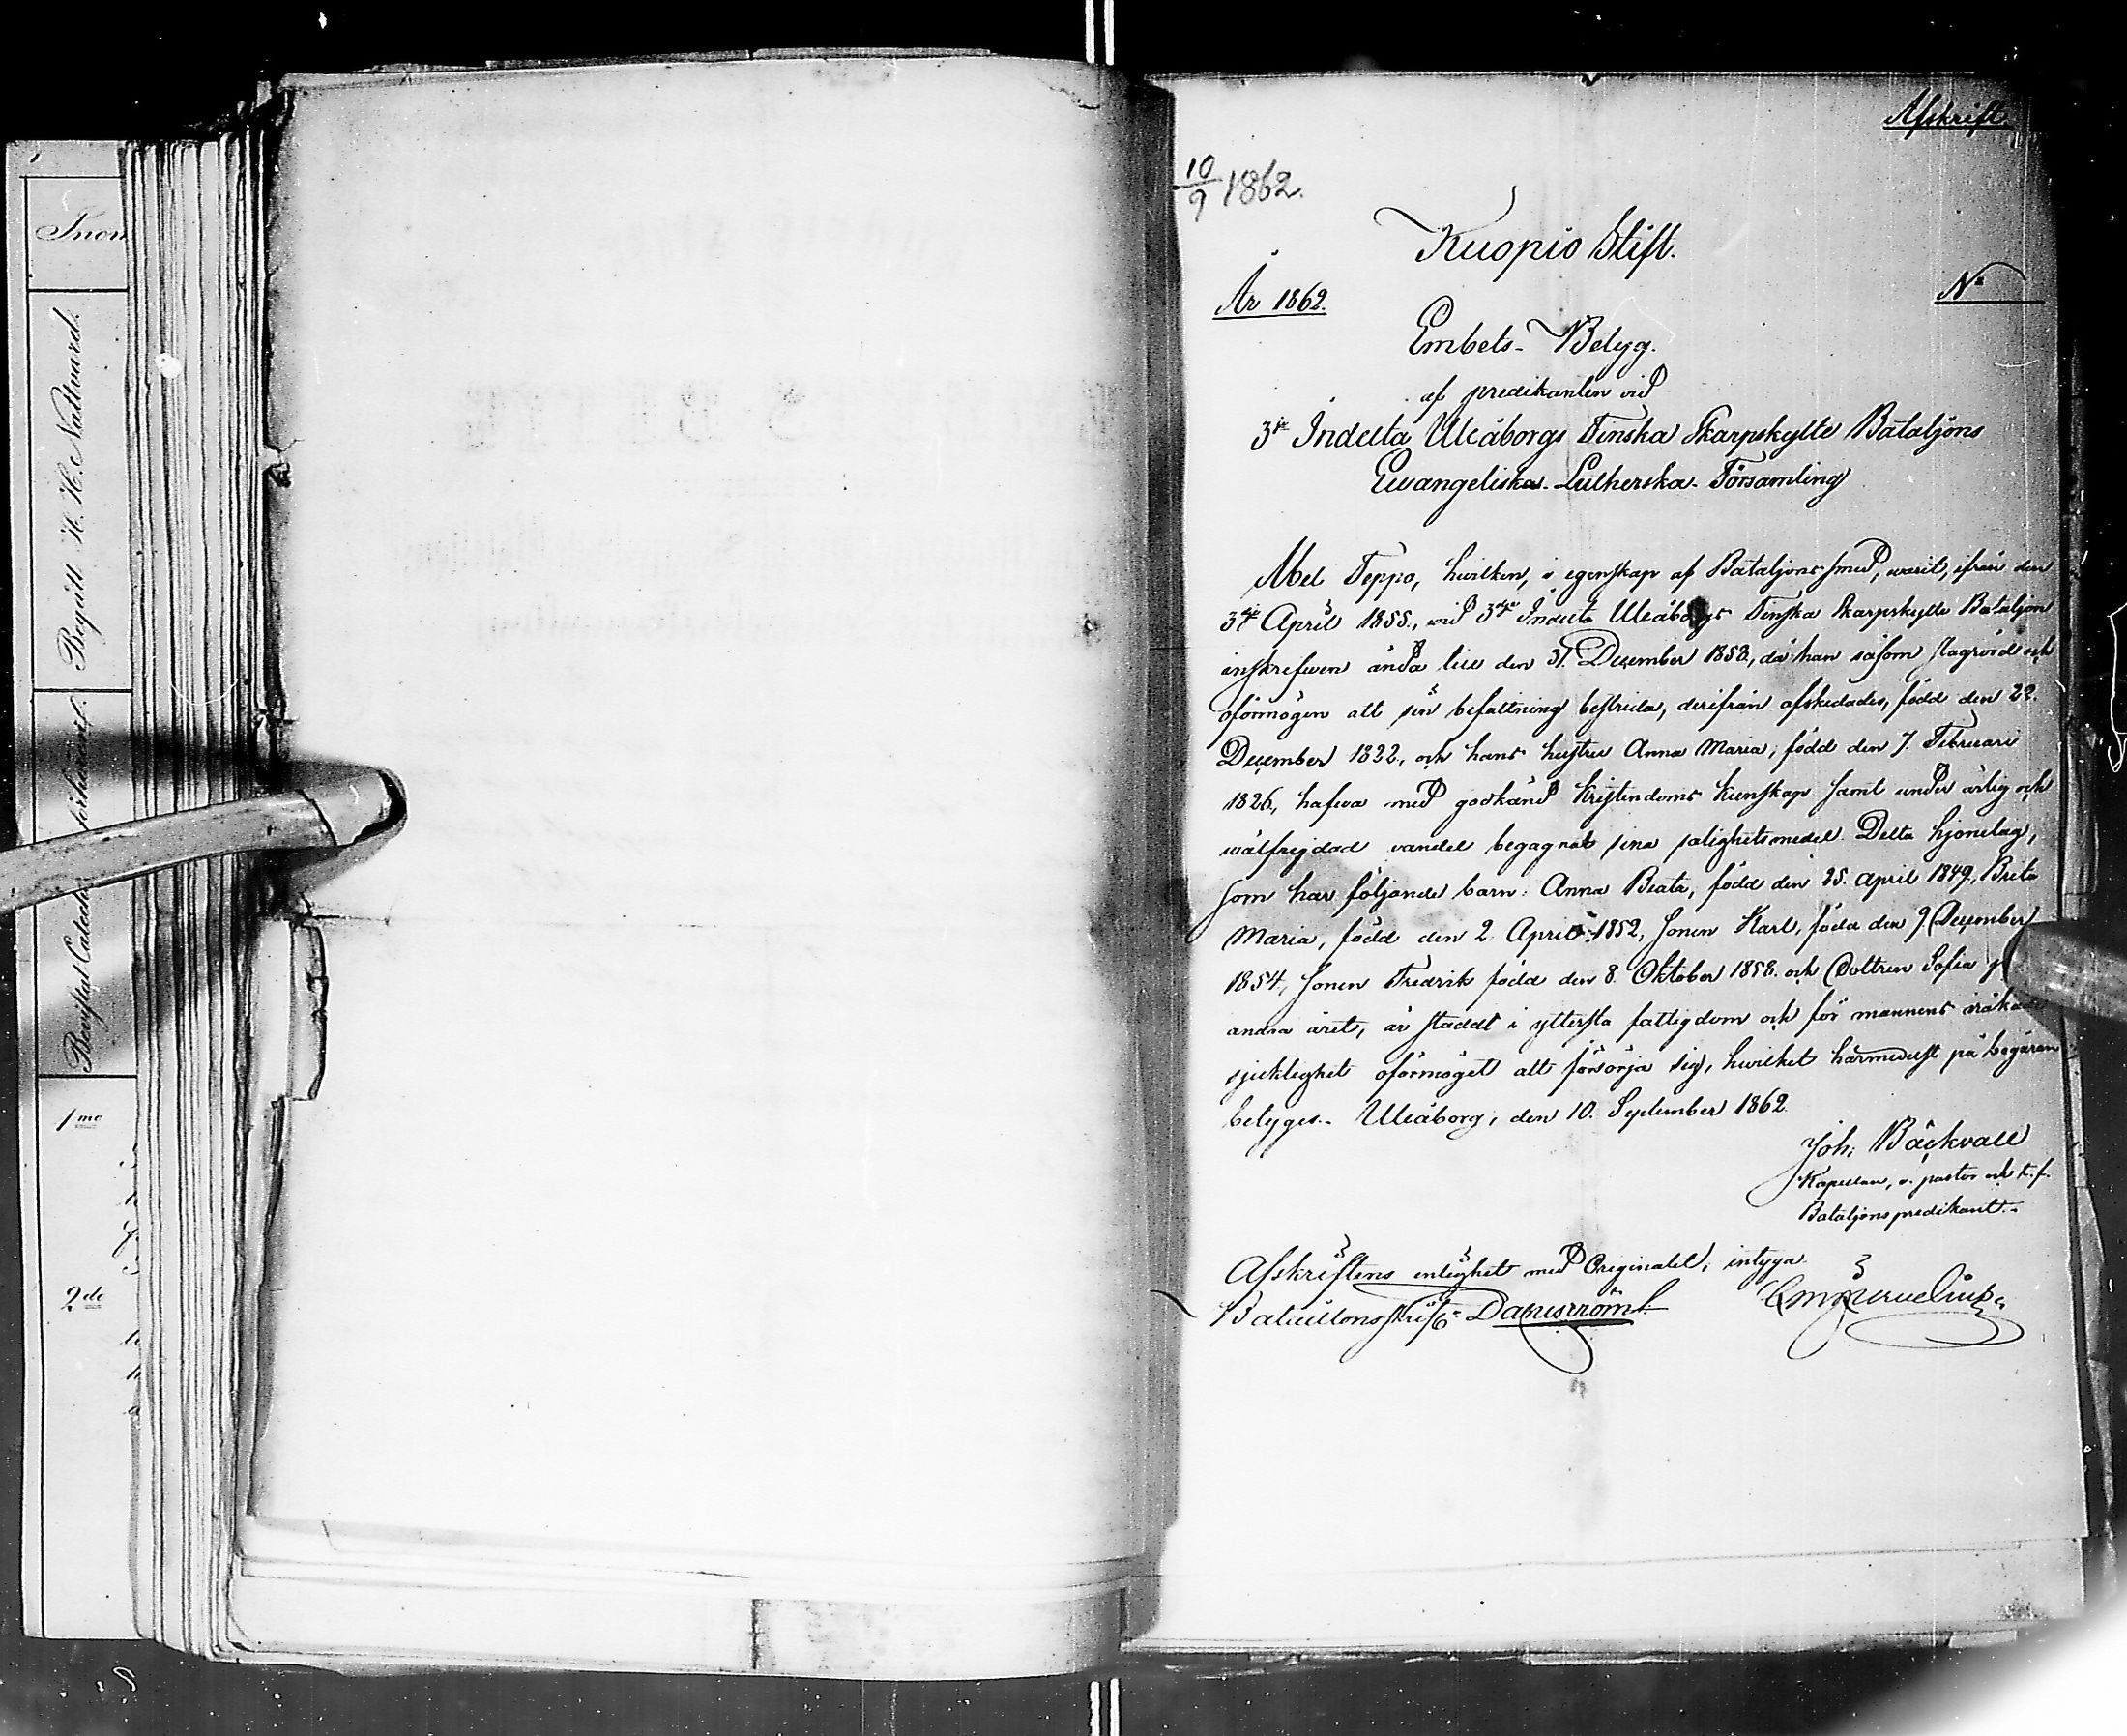 Inom
Begått H. H. Nattvard.
Bevistat Catech förhöret.
1mo
2de
Afskrift.
10/9 1862.
Kuopio Stift.
År 1862.
No
Embets-Betyg.
af predikanten vid
3je Indelta Uleåborgs Finska Skarpskytte Bataljons
Ewangeliska-Lutherska-Församling
Abel Teppo, hvilken, i egenskap af Bataljons smed, warit, ifrån den
3dje April 1855, vid 3dje Indelta Uleåborgs Finska Skarpskytte Bataljon
inskrefwen ända till den 31. December 1858, då han såsom slagrörd och
oförmögen att sin befattning bestrida, derifrån afskedades, född den 22.
December 1822, och hans hustru Anna Maria, född den 7. Februari
1826, hafwa med godkänd Kristendoms kunskap samt under ärlig och
wälfrejdad vandel begagnat sina salighetsmedel. Detta hjonelag,
som har följande barn: Anna Beata, född den 25. April 1849, Brita
Maria, född den 2. April 1852, Sonen Karl, född den 9. December
1854, Sonen Fredrik född den 8. Oktober 1858. och Dottren Sofia
andra året, är stadt i yttersta fattigdom och för mannens iråkade
sjuklighet oförmöget att försörja sig, hwilket härmedelst på begäran
betyges. Uleåborg, den 10. September 1862.
Joh. Bäckvall
Kapellan, v. pastor och t. f.
Bataljons predikant.
Afskriftens enlighet med Originalet, intyga